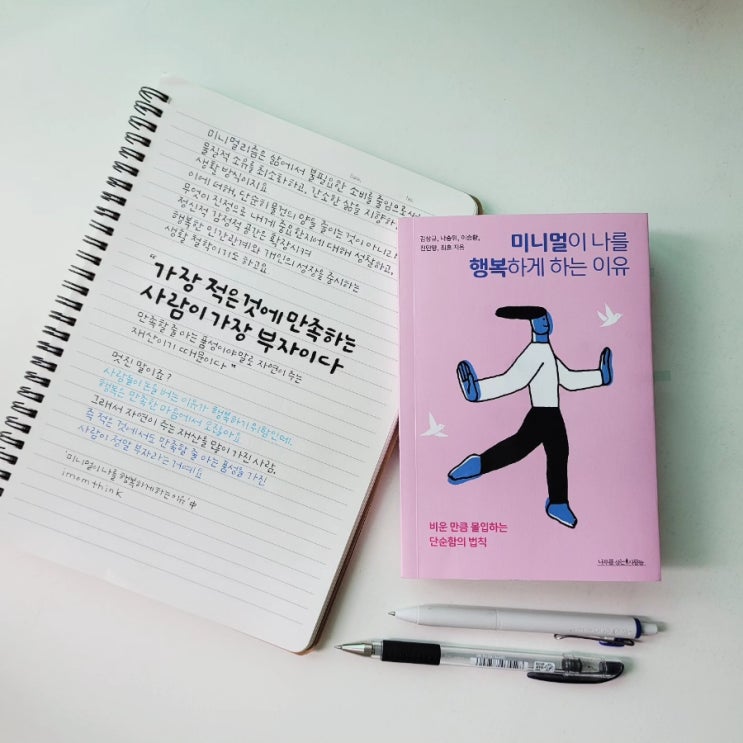 미니멀리즘은 삶에서 불필요한 소비를 줄임으로써
물질적 소유를 최소화하고, 간소한 삶을 지향하
생활 방식이지요
이에 더해, 단순히 물건의 양을 줄이는 것이 아니라
무엇이 진정으로 내게 중요한지에 대해 성찰하고,
정신적 감정적 공간은 확장시켜
행복한 인간관계와 개인의 성장을 중시하는
생활 철학이기도 하고요
"가장 적은것에 만족하는
사람이 가장 부자이다
만족할 줄 아는 품성이야말로 자연이 주는
재산이기 때문이다"
멋진 말이죠?
사람들이 돈을 버는 이유가 행복하기 위함인데,
행복은 만족한 마음에서 오잖아요
그래서 자연이 주는 재산을 많이 가진 사람,
즉 적은 것에서도 만족할 줄 아는 품성을 가진
사람이 정말 부자라는 거예요
'미니멀이 나를 행복하게 하는 이유' 中
imomthink
미니멀이 나를
행복하게 하는 이유
비운 만큼 몰입하는
단순함의 법칙